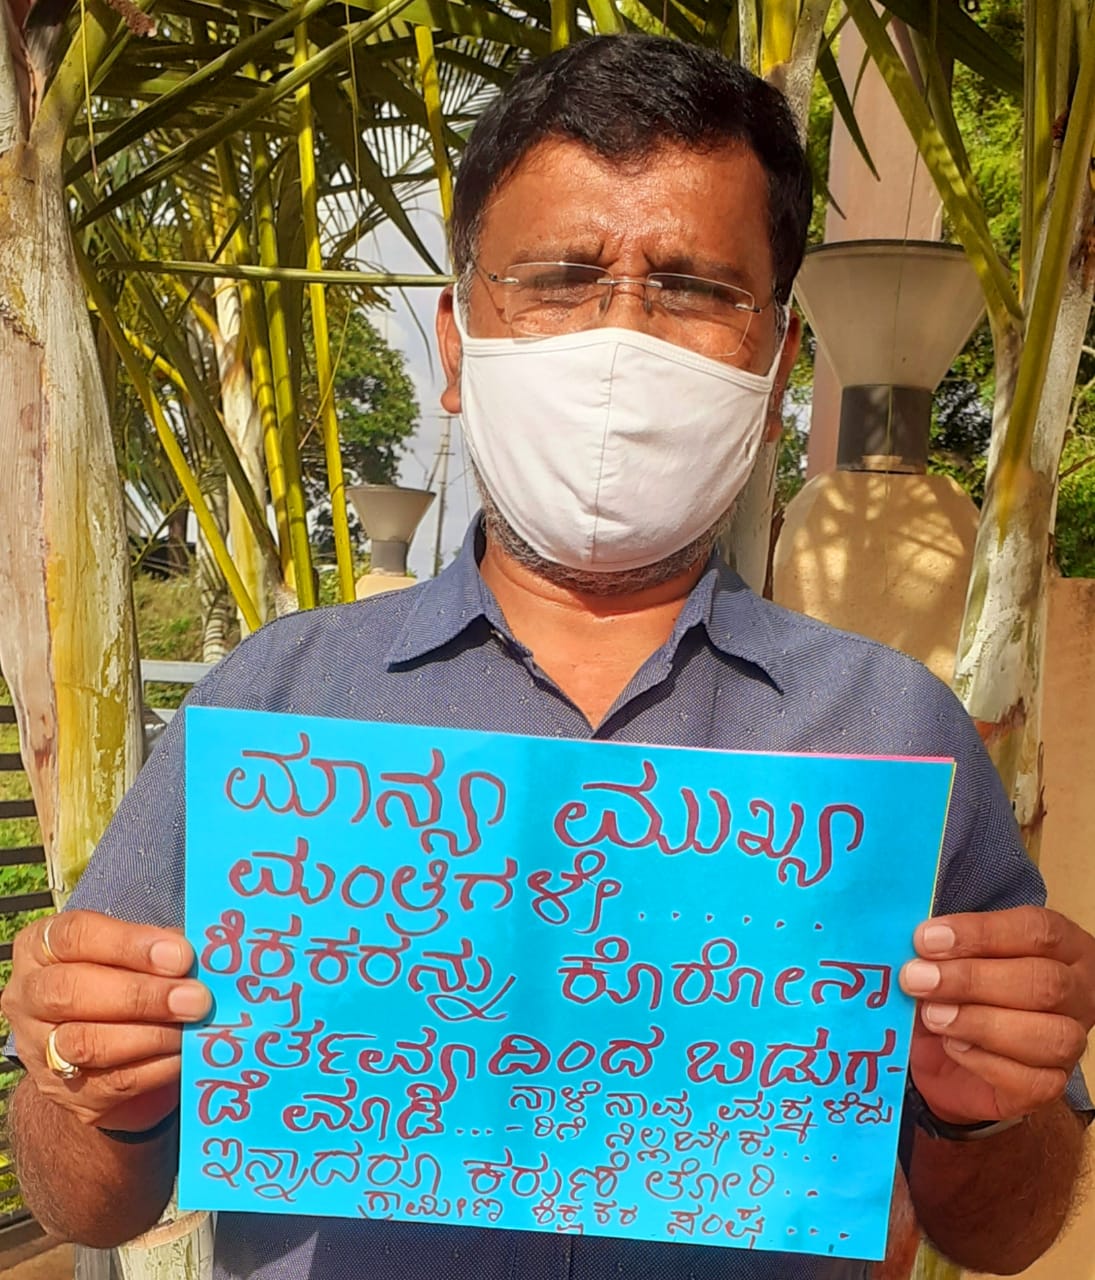 ಮಾನ್ಯ ಮುಖ್ಯ
ಮಂತ್ರಿಗಳೇ.......
ಶಿಕ್ಷಕರನ್ನು ಕೊರೋನಾ
ಕರ್ತವ್ಯದಿಂದ ಬಿಡುಗ-
ಡೆ ಮಾಡಿ....- ನಾಳೆ ನಾವು ಮಕ್ಕಳೆದು
ರಿಗೆ ನಿಲ್ಲಬೇಕು...
ಇನ್ನಾದರೂ ಕರುಣೆ ತೋರಿ..
ಗ್ರಾಮೀಣ ಶಿಕ್ಷಕರ ಸಂಘ...